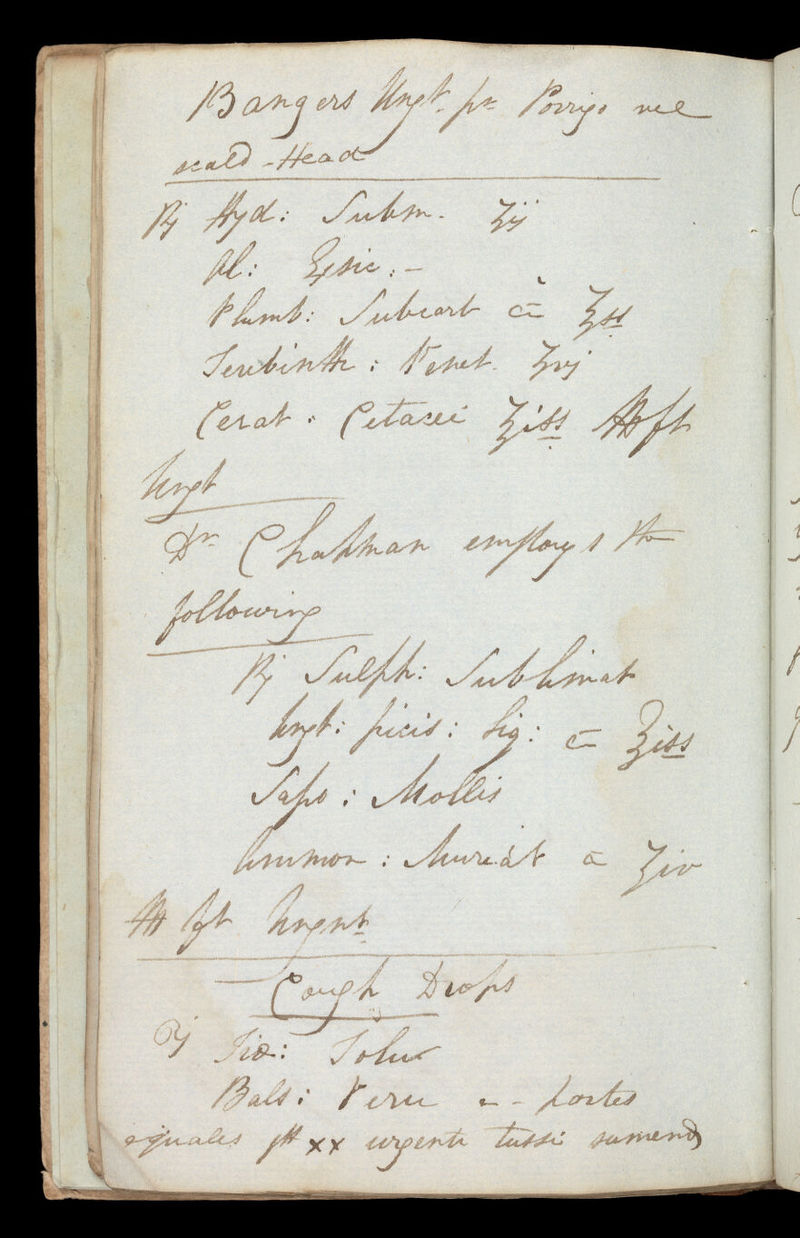 Bangers Ungt. pr Porrigo vel
scald-Head
℞ Hyd: Subm. ʒij
Al: Exsic: -
Plumb: Subcarb ā ʒss
Terebinth: Venet. ʒvj
Cerat. Cetacei ℥iss M ft
Ungt
Dr Chapman employs the
following
℞ Sulph: Sublimat
Ungt: picis: Liq: ā ℥iss
Sapo: Mollis
Ammon: Muriat ā ʒiv
M ft Ungnt
Cough Drops
℞ Tinc: Tolu
Bals: Peru a - partes
equales gtt xx urgente tussi sumend